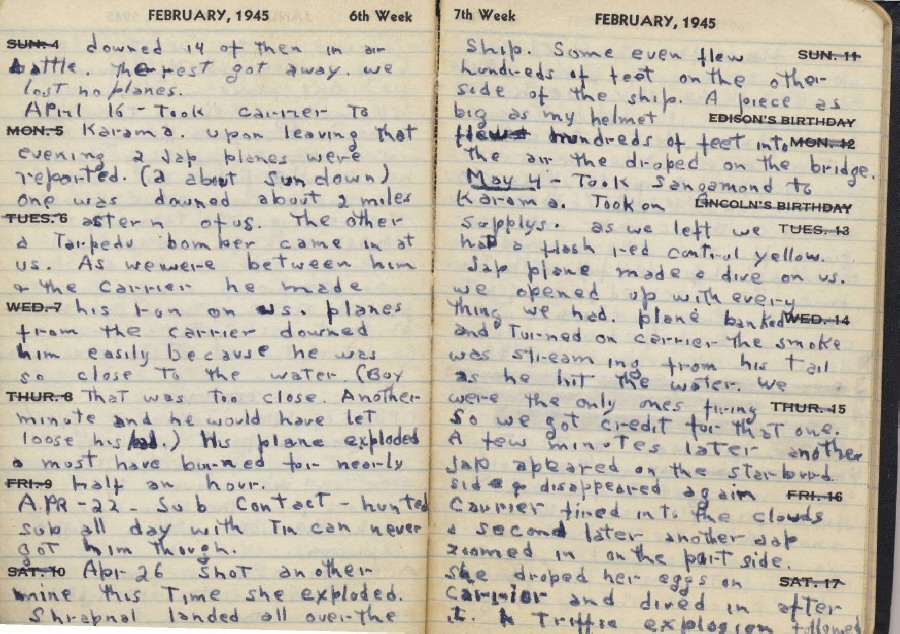 FEBRUARY, 1945 6th Week
SUN. 4 downed 14 of then in air
battle. The rest got away. we
lost no planes.
April 16 - Took carrier to
MON. 5 Karama. upon leaving that
evening 2 Jap planes were
reported. (2 about Sun down)
one was downed about 2 miles
TUES. 6 astern of us. The other
a Tarpedo bomber came in at
us. As we were between him
& the Carrier he made
WED. 7 his run on us. planes
from the carrier downed
him easily because he was
so close to the water (Boy
THUR. 8 That was too close. Another
minute and he would have let
loose his .) His plane exploded
a most have burned for nearly
FRI. 9 half an hour.
APR - 22 - Sub Contact - hunted
sub all day with Tin can never
got him though.
SAT. 10 Apr 26 shot another
mine this Time she exploded.
Shrapnal landed all over the
7th Week FEBRUARY, 1945
Ship. Some even flew SUN. 11
hundreds of feet on the other
side of the ship. A piece as
big as my helmet EDISON'S BIRTHDAY
flew hundreds of feet into MON. 12
the air the droped on the bridge.
May 4 - Took Sangamond to
Karama. Took on LINCOLN'S BIRTHDAY
supplys. as we left we TUES. 13
had a flash red control yellow.
Jap plane made a dive on us.
we opened up with every
thing we had. plane banked WED. 14
and Turned on carrier the smoke
was streaming from his tail
as he hit the water. We
were the only ones firing THUR. 15
So we got credit for that one.
A few minutes later another
Jap apeared on the starburd
side & disappeared again FRI. 16
Caurier fired into the clouds
a second later another Jap
zoomed in on the port side.
She droped her eggs on SAT. 17
carrior and dived in after
I. A Triffic explosion followed